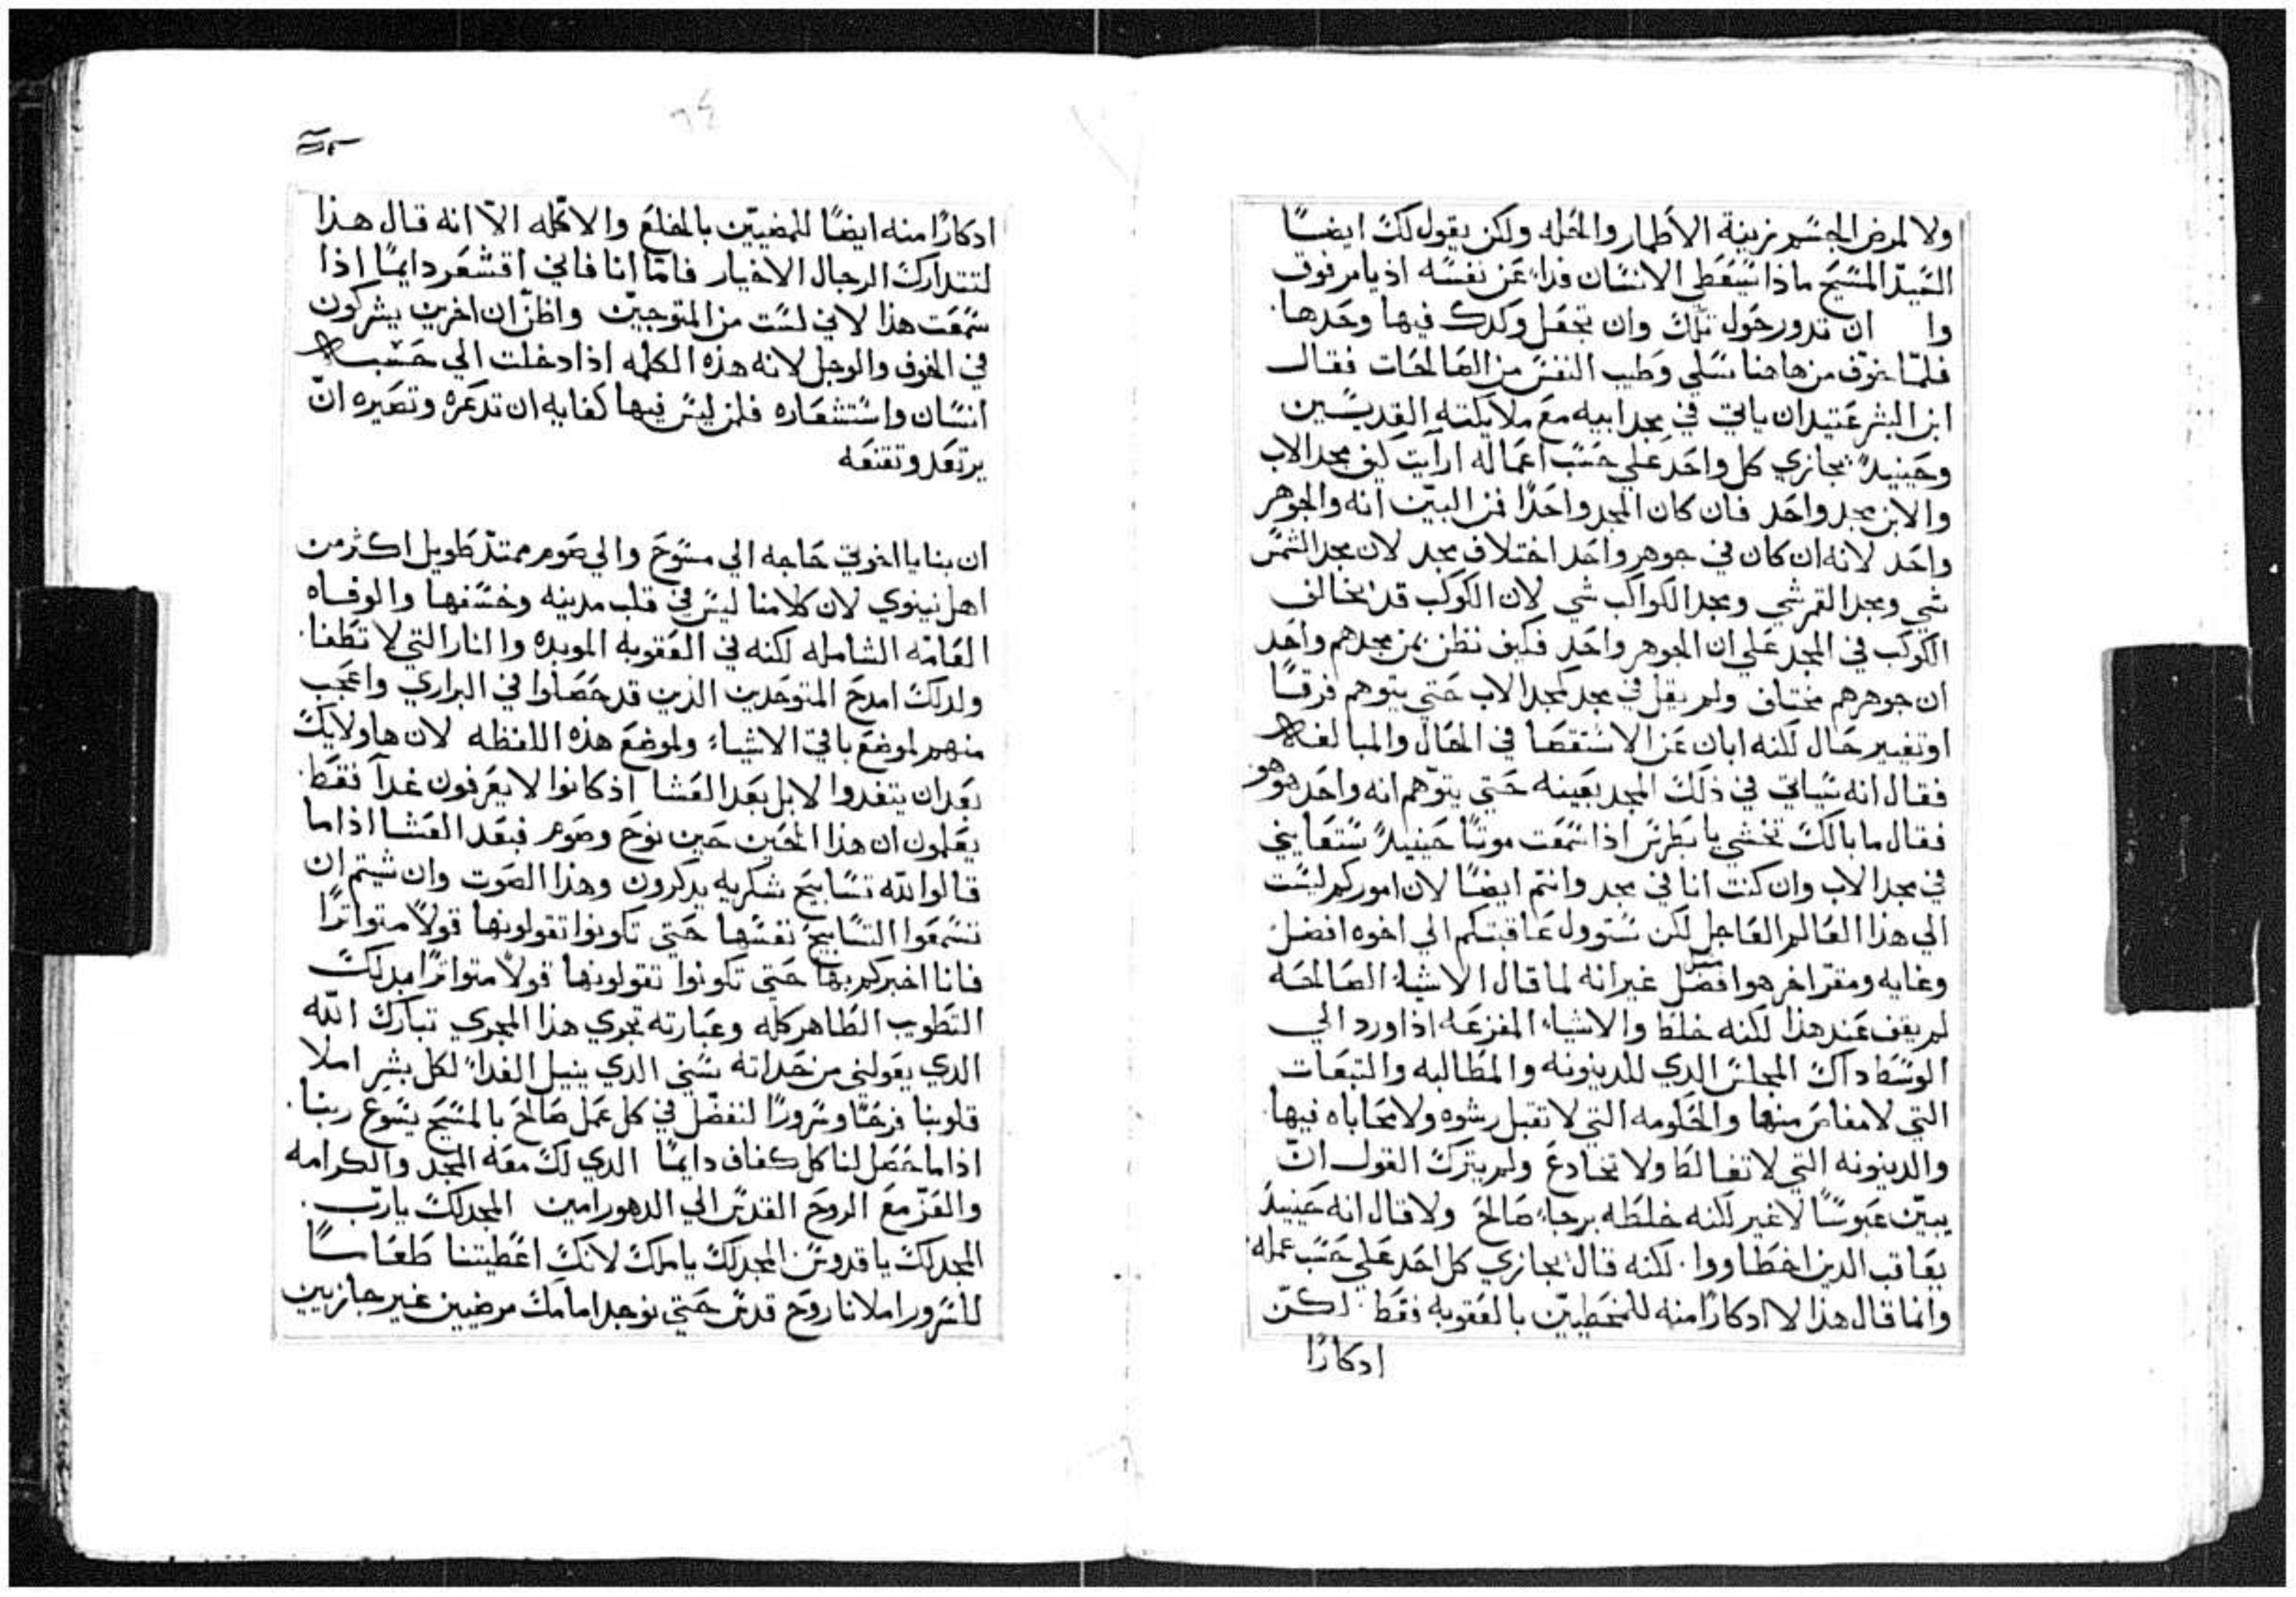 ولا لمرض الجسم بزينة الأطمار والحله ولكن يقول لك ايضًا
السيد المسيح ماذا سيعطي الانسان فداءً عن نفسه اذ يامر فوق
وا ان تدور حول تلك وان تجعل وكدك فيها وحدها
فلمّا خوّف من هاهنا سلي وطيب النفس من الصالحات فقال
ابن البشر عتيد ان ياتي في مجد ابيه مع ملايكته القديسين
وحينيدٍ يجازي كل واحد علي حسب اعماله ارآيت كيف مجد الاب
والابن مجد واحد فان كان المجد واحدًا فمن البيّن انه والجوهر
واحد لانه ان كان في جوهر واحد اختلاف مجد لان مجد الشمس
شي ومجد القمر شي ومجد الكواكب شي لان الكوكب قد يخالف
الكوكب في المجد علي ان الجوهر واحد فكيف نظن بمن مجدهم واحد
ان جوهرهم مختلف ولم يقل في مجد كمجد الاب حتي يتوهم فرقًا
او تغيير حال لكنه ابان عن الاستقصا في الحال والمبالغه
فقال انه سياتي في ذلك المجد بعينه حتي يتوّهم انه واحد هو هو
فقال ما بالك تخشي يا بطرس اذا سمعت موتًا حينيدٍ ستعايني
في مجد الاب وان كنت انا في مجد وانتم ايضًا لان اموركم ليست
الي هذا العالم العاجل لكن ستوول عاقبتكم الي اخوه افضل
وغايه ومقرّ اخر هو افضل غير انه لما قال الاشياء الصالحه
لم يقف عند هذا لكنه خلط والاشياء المفزعه اذ اورد الي
الوسط داك المجلس الدي للدينونه والمطالبه والتبعات
التي لا مفاص منها والحكومه التي لا تقبل رشوه ولا محاباه فيها
والدينونه التي لا تغالط ولا تخادع ولم يترك القول انّ
يبيّن عبوسًا لا غير لكنه خلطه برجاءٍ صالح ولا قال انه حينيد
يعاقب الدين اخطاووا لكنه قال يجازي كل احد علي حسب عمله
وانما قال هذا لا ادكارًا منه للمخطيين بالعقوبه فقط لكنّ
ادكارًا
٦٤
ادكارًا منه ايضًا للمضيّين بالخلع والاكله الاّ انه قال هذا
لتتدارك الرجال الاخيار فامّا انا فاني اقشعر دايمًا اذا
سمعت هذا لاني لست من المتوجين واظنّ ان اخرين يشركون
في الخوف والوجل لانه هذه الكلمه اذا دخلت الي حسب
انسان واستشعاره فلمن ليس فيها كفايه ان تدعره وتصيره انّ
يرتعد وتقنعه
ان بنا يا اخوتي حاجه الي مسوح والي صوم ممتدّ طويل اكثر من
اهل نينوي لان كلامنا ليس في قلب مدينه وخسفها والوفاه
العامّه الشامله لكنه في العقوبه الموبده واالنار التي لا تطفا
ولدلك امدح المتوحدين الذين قد حصلوا في البراري واعجب
منهم لموضع باقي الاشياء ولموضع هذه اللفظه لان هاولايك
بعد ان يتغدوا لا بل بعد العشا اذ كانوا لا يعرفون غدآ فقط
يعلمون ان هذا الحين حين نوح وصوم فبعد العشا اذا ما
قالوا لله تسابيح شكريه يدكرون وهذا الصوت وان شيتم ان
تسمعوا التسابيح نفسها حتي تكونوا تقولونها قولًا متواترًا
فانا اخبركم بها حتي تكونوا تقولونها قولًا متواترًا مدلك
التطويب الطاهر كله وعبارته تجري هذا المجري تبارك الله
الدي يعولني من حداته سني الدي ينيل الغداء لكل بشر املا
قلوبنا فرحًا وسرورًا لنفضّل في كل عمل صالح بالمسيح يسوع ربنا
اذا ما حصل لنا كل كفاف دايمًا الدي لك معه المجد والكرامه
والعزّ مع الروح القدس الي الدهور امين المجد لك يا ربّ
المجد لك يا قدوس المجد لك يا ملك لانك اعطيتنا طعامًا
للسرور املانا روح قدس حتي نوجد امامك مرضيين غير جازيين